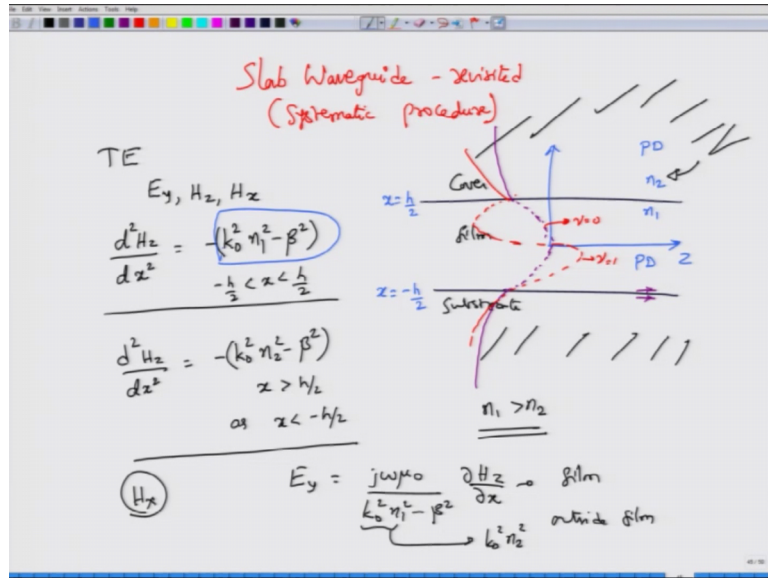 Edit View Insert Actions Tools Help
Slab Waveguide - revisited
(Systematic procedure)
TE
E_y, H_z, H_x
d²H_z/dx² = -(k_0² n_1² - β²)
-h/2 < x < h/2
d²H_z/dx² = -(k_0² n_2² - β²)
x > h/2
or x < -h/2
H_x
E_y = jωμ_0/(k_0² n_1² - β²) ∂H_z/∂x → film
k_0² n_2² outside film
PD
n_2
Cover
x = h/2
n_1
ν=0
film
ν=1
PD Z
x = -h/2
Substrate
n_1 > n_2